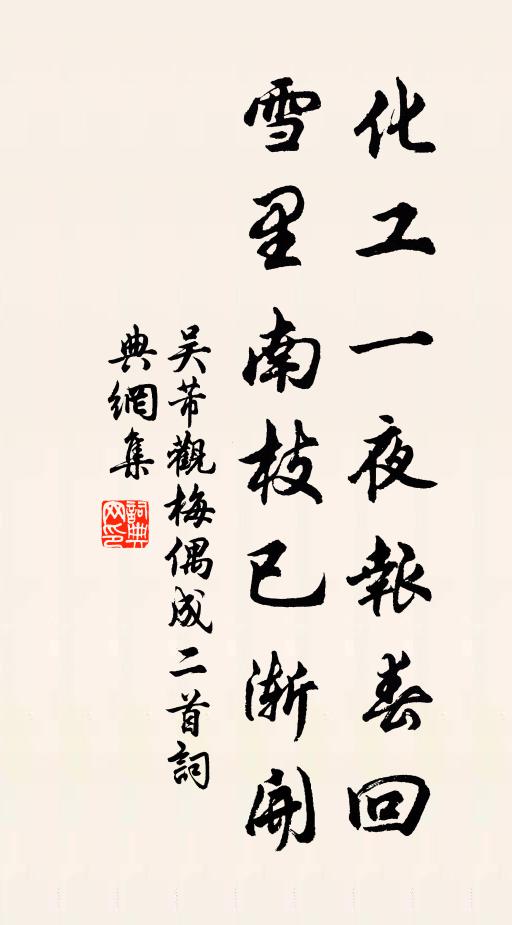 化工一夜報春回
雪里南枝已漸開
吴芾觀梅偶成二首詞
典網集
詞典网印